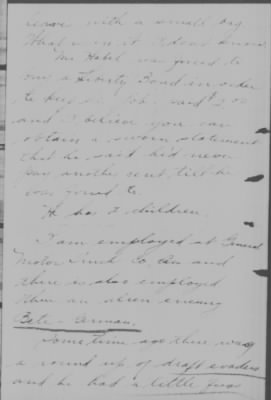 leave with a small bag
What is in it I dont know
Mr Habel was forced to
buy a Liberty Bond in order
to keep his job. said $2.00
and I believe you can
obtain a sworn statement
that he said he'd never
pay another cent, till he
was forced to.
He has 2 children.
I am employed at General
Motor Truck Co. and
there is also employed
there an alien enemy
Bete - German.
Sometime ago there was
a round up of draft evaders
and he had a little